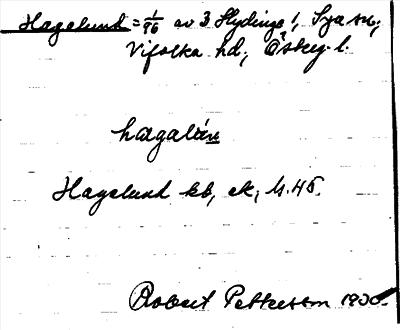 Hagelund = 1/96 av 3 Slydinge !, Sya sn,
Vifolka hd, Östeg. l.
hagalún
Hagelund kb, ek, M.45.
Robert Pettersson 1930.